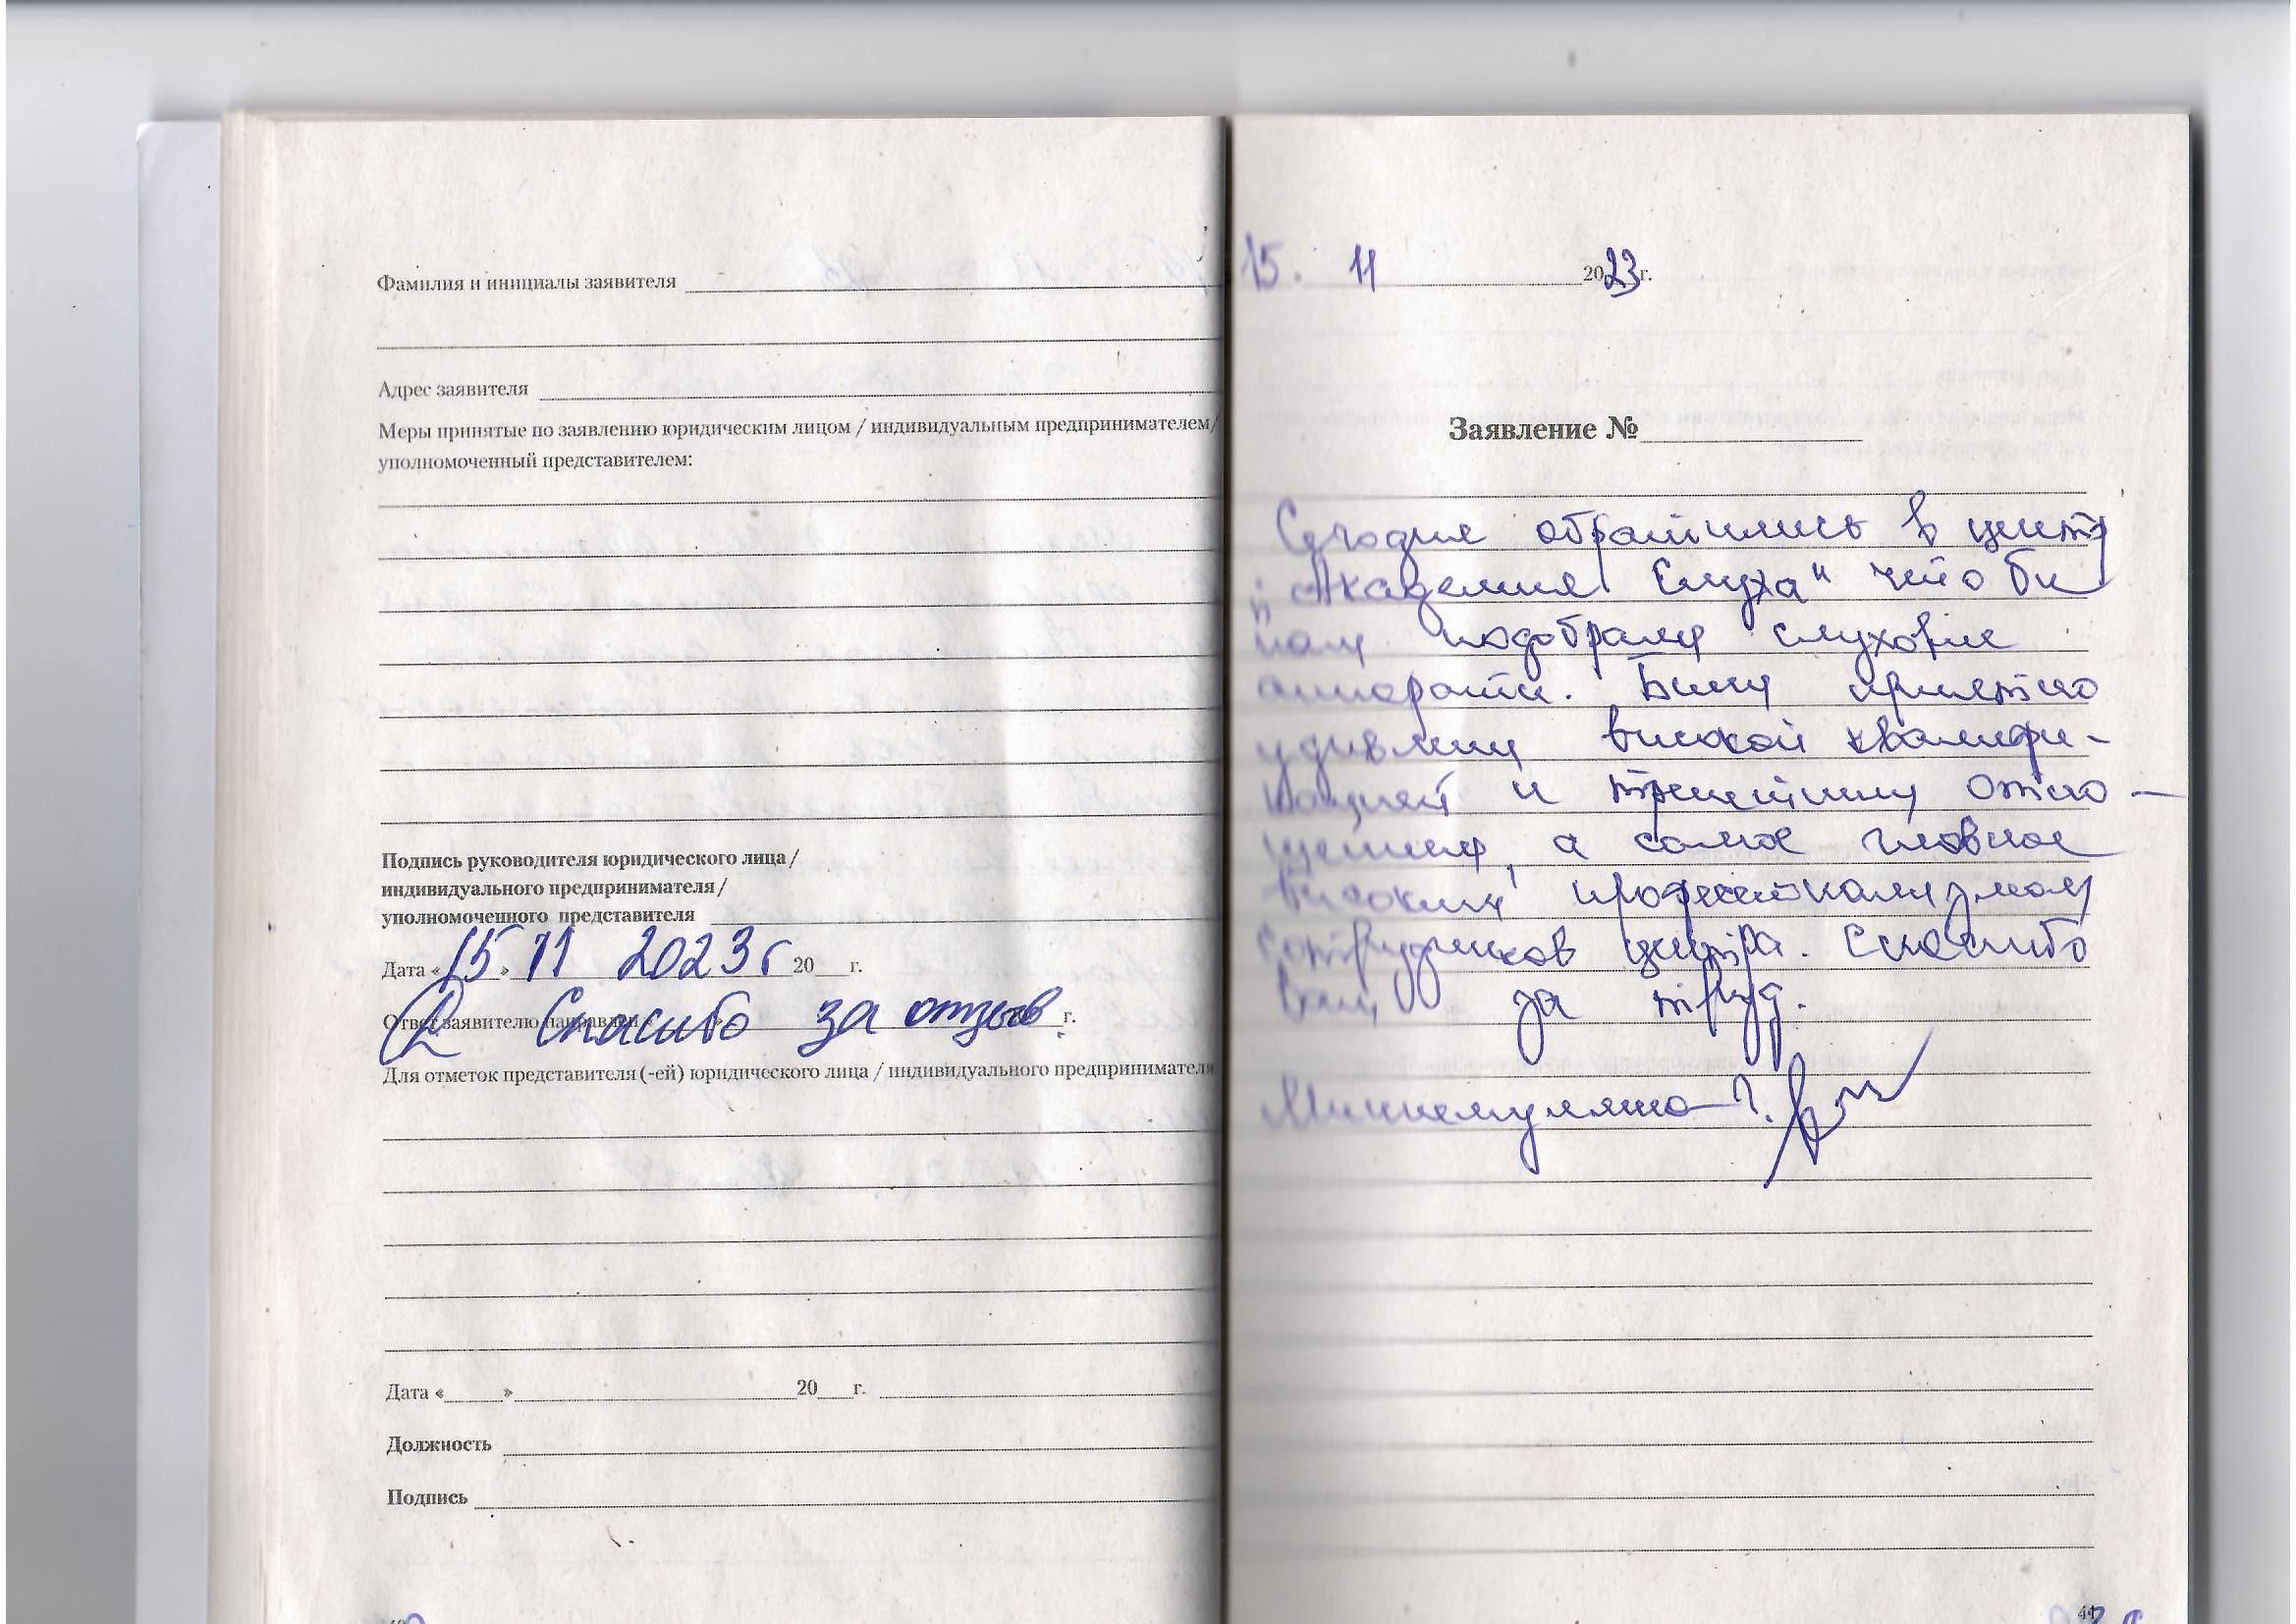 Фамилия и инициалы заявителя
Адрес заявителя
Меры принятые по заявлению юридическим лицом / индивидуальным предпринимателем/
уполномоченный представителем:
Подпись руководителя юридического лица /
индивидуального предпринимателя /
уполномоченного представителя
Дата « 15 » 11 2023 г 20 г.
Ответ заявителю направлен г.
Спасибо за отзыв
Для отметок представителя (-ей) юридического лица / индивидуального предпринимателя
Дата « » 20 г.
Должность
Подпись
15. 11 2023 г.
Заявление №
Сегодня обратились в центр
„Академия Слуха" что бы
нам подобрали слуховые
аппараты. Были приятно
удивлены высокой квалифи-
кацией и отно-
шением, а самое главное
высоким профессионализмом
сотрудников центра. Спасибо
Вам за труд.